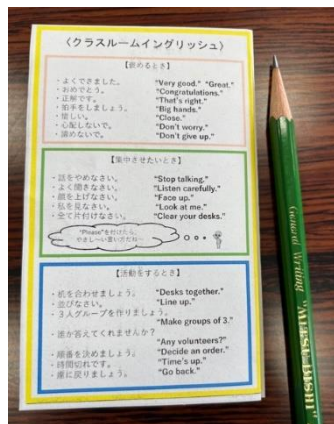 〈クラスルームイングリッシュ〉
【褒めるとき】
・よくできました。 "Very good." "Great."
・おめでとう。 "Congratulations."
・正解です。 "That's right."
・拍手をしましょう。 "Big hands."
・惜しい。 "Close."
・心配しないで。 "Don't worry."
・諦めないで。 "Don't give up."
【集中させたいとき】
・話をやめなさい。 "Stop talking."
・よく聞きなさい。 "Listen carefully."
・顔を上げなさい。 "Face up."
・私を見なさい。 "Look at me."
・全て片付けなさい。 "Clear your desks."
"Please"を付けたら、
やさし〜い言い方だね〜
【活動をするとき】
・机を合わせましょう。 "Desks together."
・並びなさい。 "Line up."
・3人グループを作りましょう。
"Make groups of 3."
・誰か答えてくれませんか?
"Any volunteers?"
・順番を決めましょう。 "Decide an order."
・時間切れです。 "Time's up."
・席に戻りましょう。 "Go back."
General Writing "MITSU-BISHI"